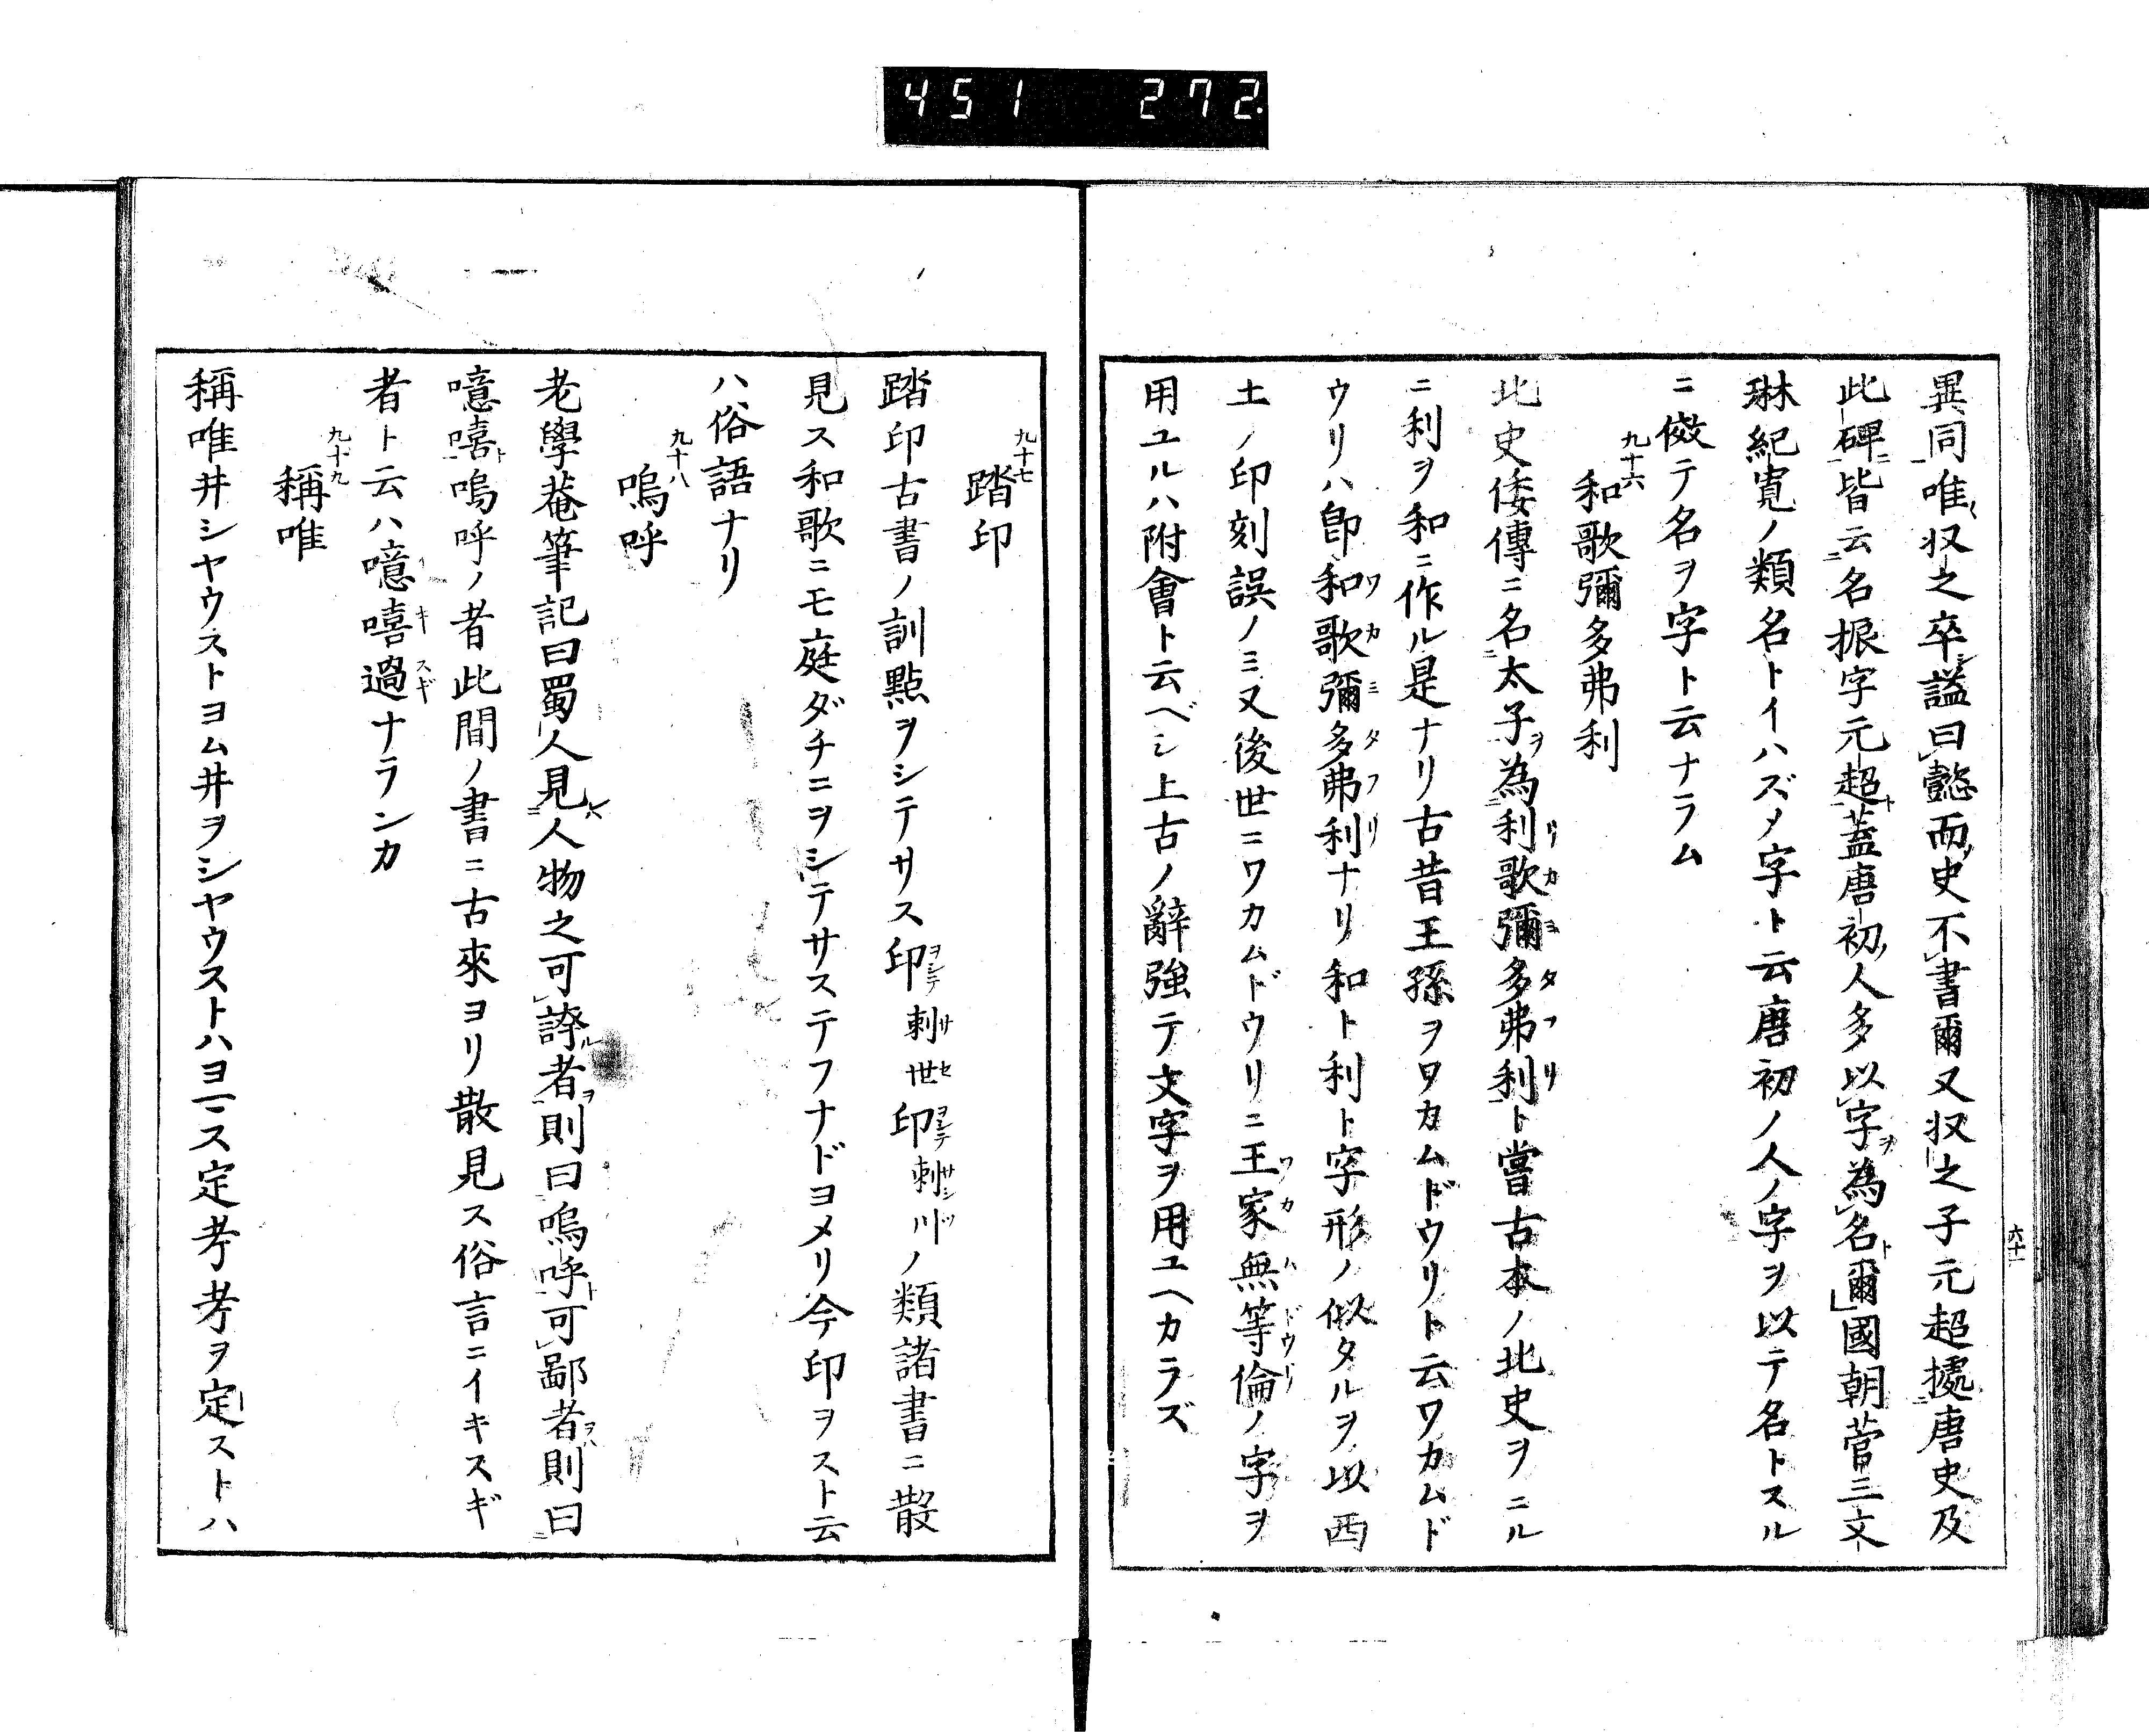 451 272.
異同唯収之卒諡曰懿而史不書爾又収之子元超據唐史及
此碑皆云名振字元超蓋唐初人多以字為名爾國朝菅三文
琳紀寛ノ類名トイハズメ字ト云唐初ノ人ノ字ヲ以テ名トスル
ニ傚テ名ヲ字ト云ナラム
九十六
和歌彌多弗利
北史倭傳ニ名太子ヲ為利歌彌多弗利ト嘗古本ノ北史ヲニル
ニ利ヲ和ニ作ル是ナリ古昔王孫ヲワカムドウリト云ワカムド
ウリハ卽和歌彌多弗利ナリ和ト利ト字形ノ似タルヲ以西
土ノ印刻誤ノミ又後世ニワカムドウリニ王家無等倫ノ字ヲ
用ユルハ附會ト云ベシ上古ノ辭強テ文字ヲ用ユヘカラズ
六十一
九十七
踏印
踏印古書ノ訓點ヲシテサス印刺世印刺川ノ類諸書ニ散
見ス和歌ニモ庭ダチニヲシテサステフナドヨメリ今印ヲスト云
ハ俗語ナリ
九十八
嗚呼
老學菴筆記曰蜀人見人物之可誇者則曰嗚呼可鄙者則曰
噫嘻嗚呼ノ者此間ノ書ニ古來ヨリ散見ス俗言ニイキスギ
者ト云ハ噫嘻過ナランカ
九十九
稱唯
稱唯井シヤウストヨム井ヲシヤウストハヨマス定考考ヲ定ストハ